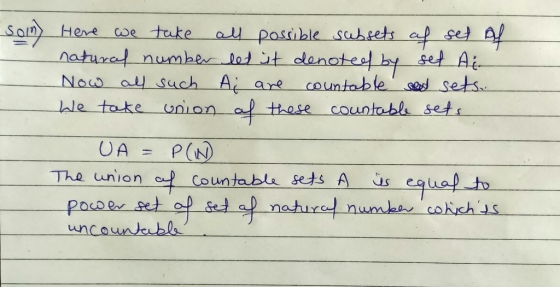 Soln) Here we take all possible subsets of set of
natural number let it denoted by set Ai.
Now all such Ai are countable sets.
We take union of these countable sets
UA = P(N)
The union of countable sets A is equal to
power set of set of natural number which is
uncountable.